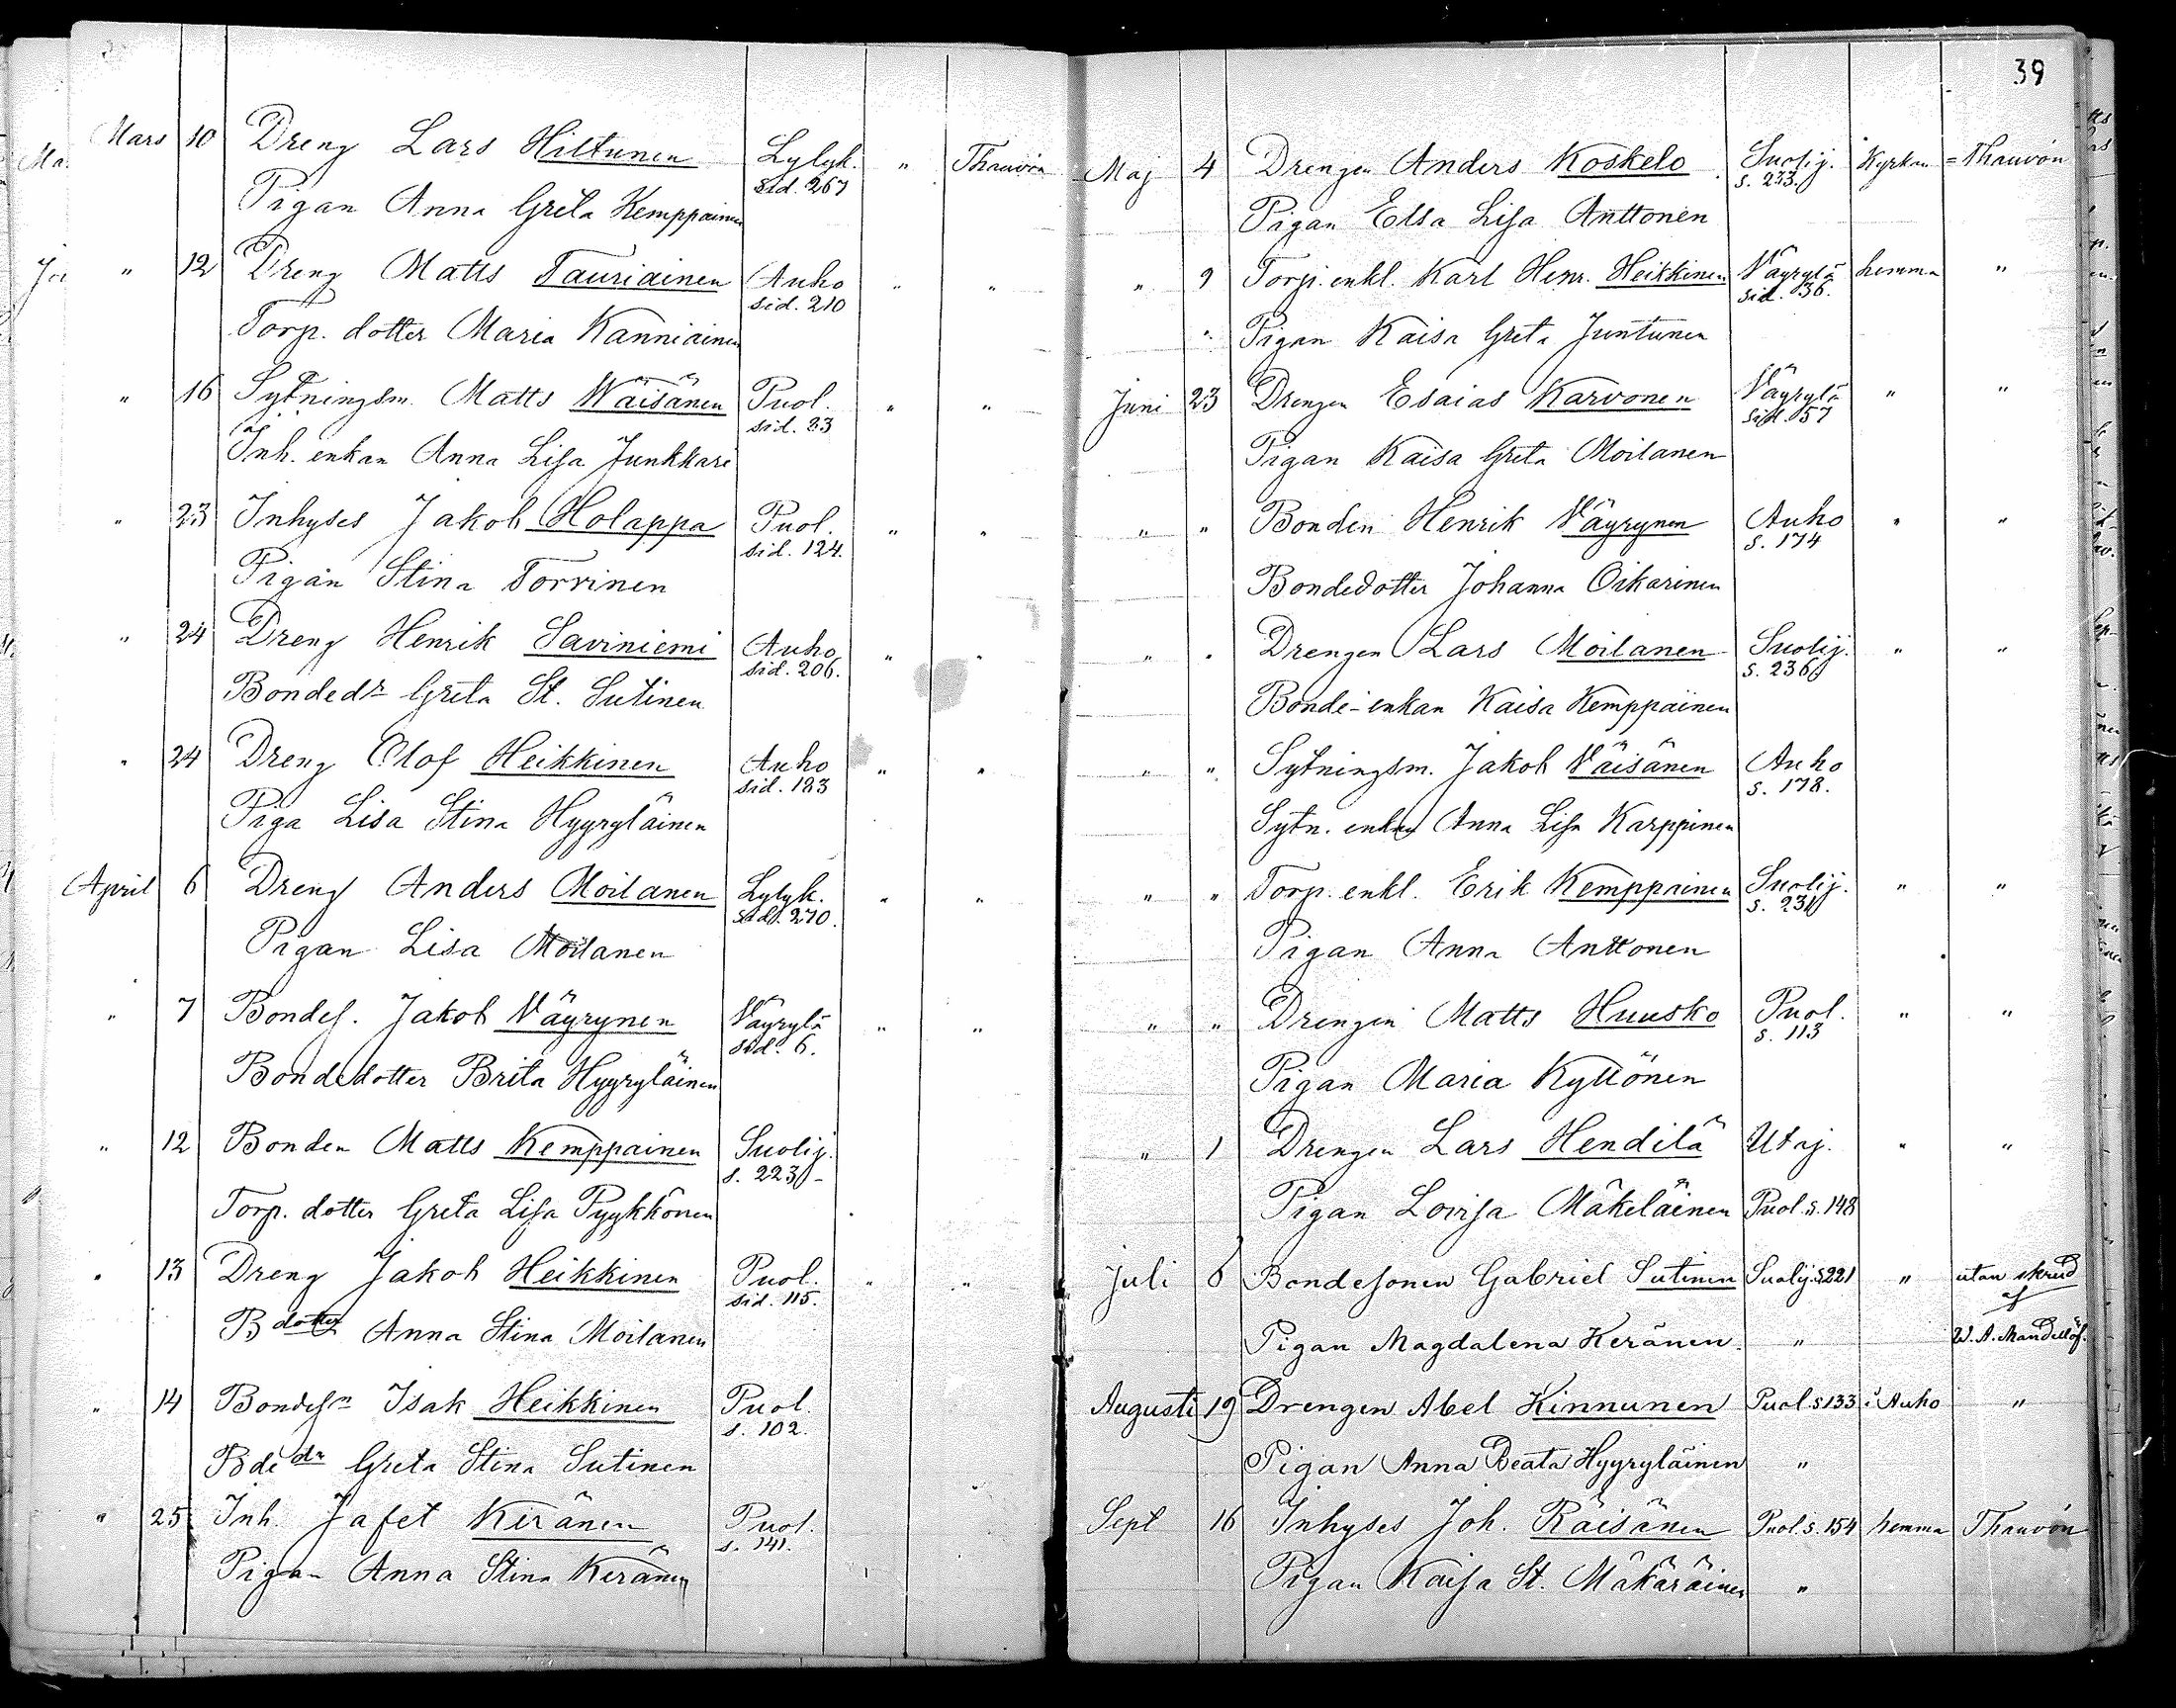 39
Mars 10 Dreng Lars Hiltunen Lylyk. sid. 267 " Thauvón
Pigan Anna Greta Kemppainen
" 12 Dreng Matts Tauriainen Auho sid. 210 " "
Torp. dotter Maria Kanniainen
" 16 Sytningsm. Matts Wäisänen Puol. sid. 23 " "
Inh. enkan Anna Lisa Junkkari
" 23 Inhyses Jakob Holappa Puol. sid. 124. " "
Pigan Stina Torvinen
" 24 Dreng Henrik Saviniemi Auho sid. 206. " "
Bondedr Greta St. Sutinen
" 24 Dreng Olof Heikkinen Auho sid. 183 " "
Piga Lisa Stina Hyyryläinen
April 6 Dreng Anders Moilanen Lylyk. sid. 270. " "
Pigan Lisa Moilanen
" 7 Bondes. Jakob Väyrynen Väyrylä sid. 6. " "
Bondedotter Brita Hyyryläinen
" 12 Bonden Matts Kemppainen Suolij. s. 223
Torp. dotter Greta Lisa Pyykkönen
" 13 Dreng Jakob Heikkinen Puol. sid. 115. " "
B dotter Anna Stina Moilanen
" 14 Bondesn Isak Heikkinen Puol. s. 102.
Bde dr Greta Stina Sutinen
" 25 Inh. Jafet Keränen Puol. s. 141.
Pigan Anna Stina Keränen
Maj 4 Drengen Anders Koskelo Suolij. s. 233. Kyrkan = Thauvón
Pigan Elsa Lisa Anttonen
" 9 Torp. enkl. Karl Henr. Heikkinen Väyrylä sid. 36. hemma "
" Pigan Kaisa Greta Juntunen
Juni 23 Drengen Esaias Karvonen Väyrylä sid. 57 " "
Pigan Kaisa Greta Moilanen
" " Bonden Henrik Väyrynen Auho s. 174 " "
Bondedotter Johanna Oikarinen
" " Drengen Lars Moilanen Suolij. s. 236 " "
Bonde-enkan Kaisa Kemppainen
" " Sytningsm. Jakob Väisänen Auho s. 178.
Sytn. enkan Anna Lisa Karppinen
" " Torp. enkl. Erik Kemppainen Suolij. s. 231 " "
Pigan Anna Anttonen
" " Drengen Matts Huusko Puol. s. 113 " "
Pigan Maria Kyllönen
" 1 Drengen Lars Hendilä Utaj. " "
Pigan Lovisa Mäkeläinen Puol. s. 148
Juli 6 Bondesonen Gabriel Sutinen Suolij. s. 221 " utan skrud
af
Pigan Magdalena Keränen. " W. A. Mandellöf.
Augusti 19 Drengen Abel Kinnunen Puol. s. 133 i Auho "
Pigan Anna Beata Hyyryläinen "
Sept 16 Inhyses Joh. Räisänen Puol. s. 154 hemma Thauvón
Pigan Kaisa St. Mäkäräinen "